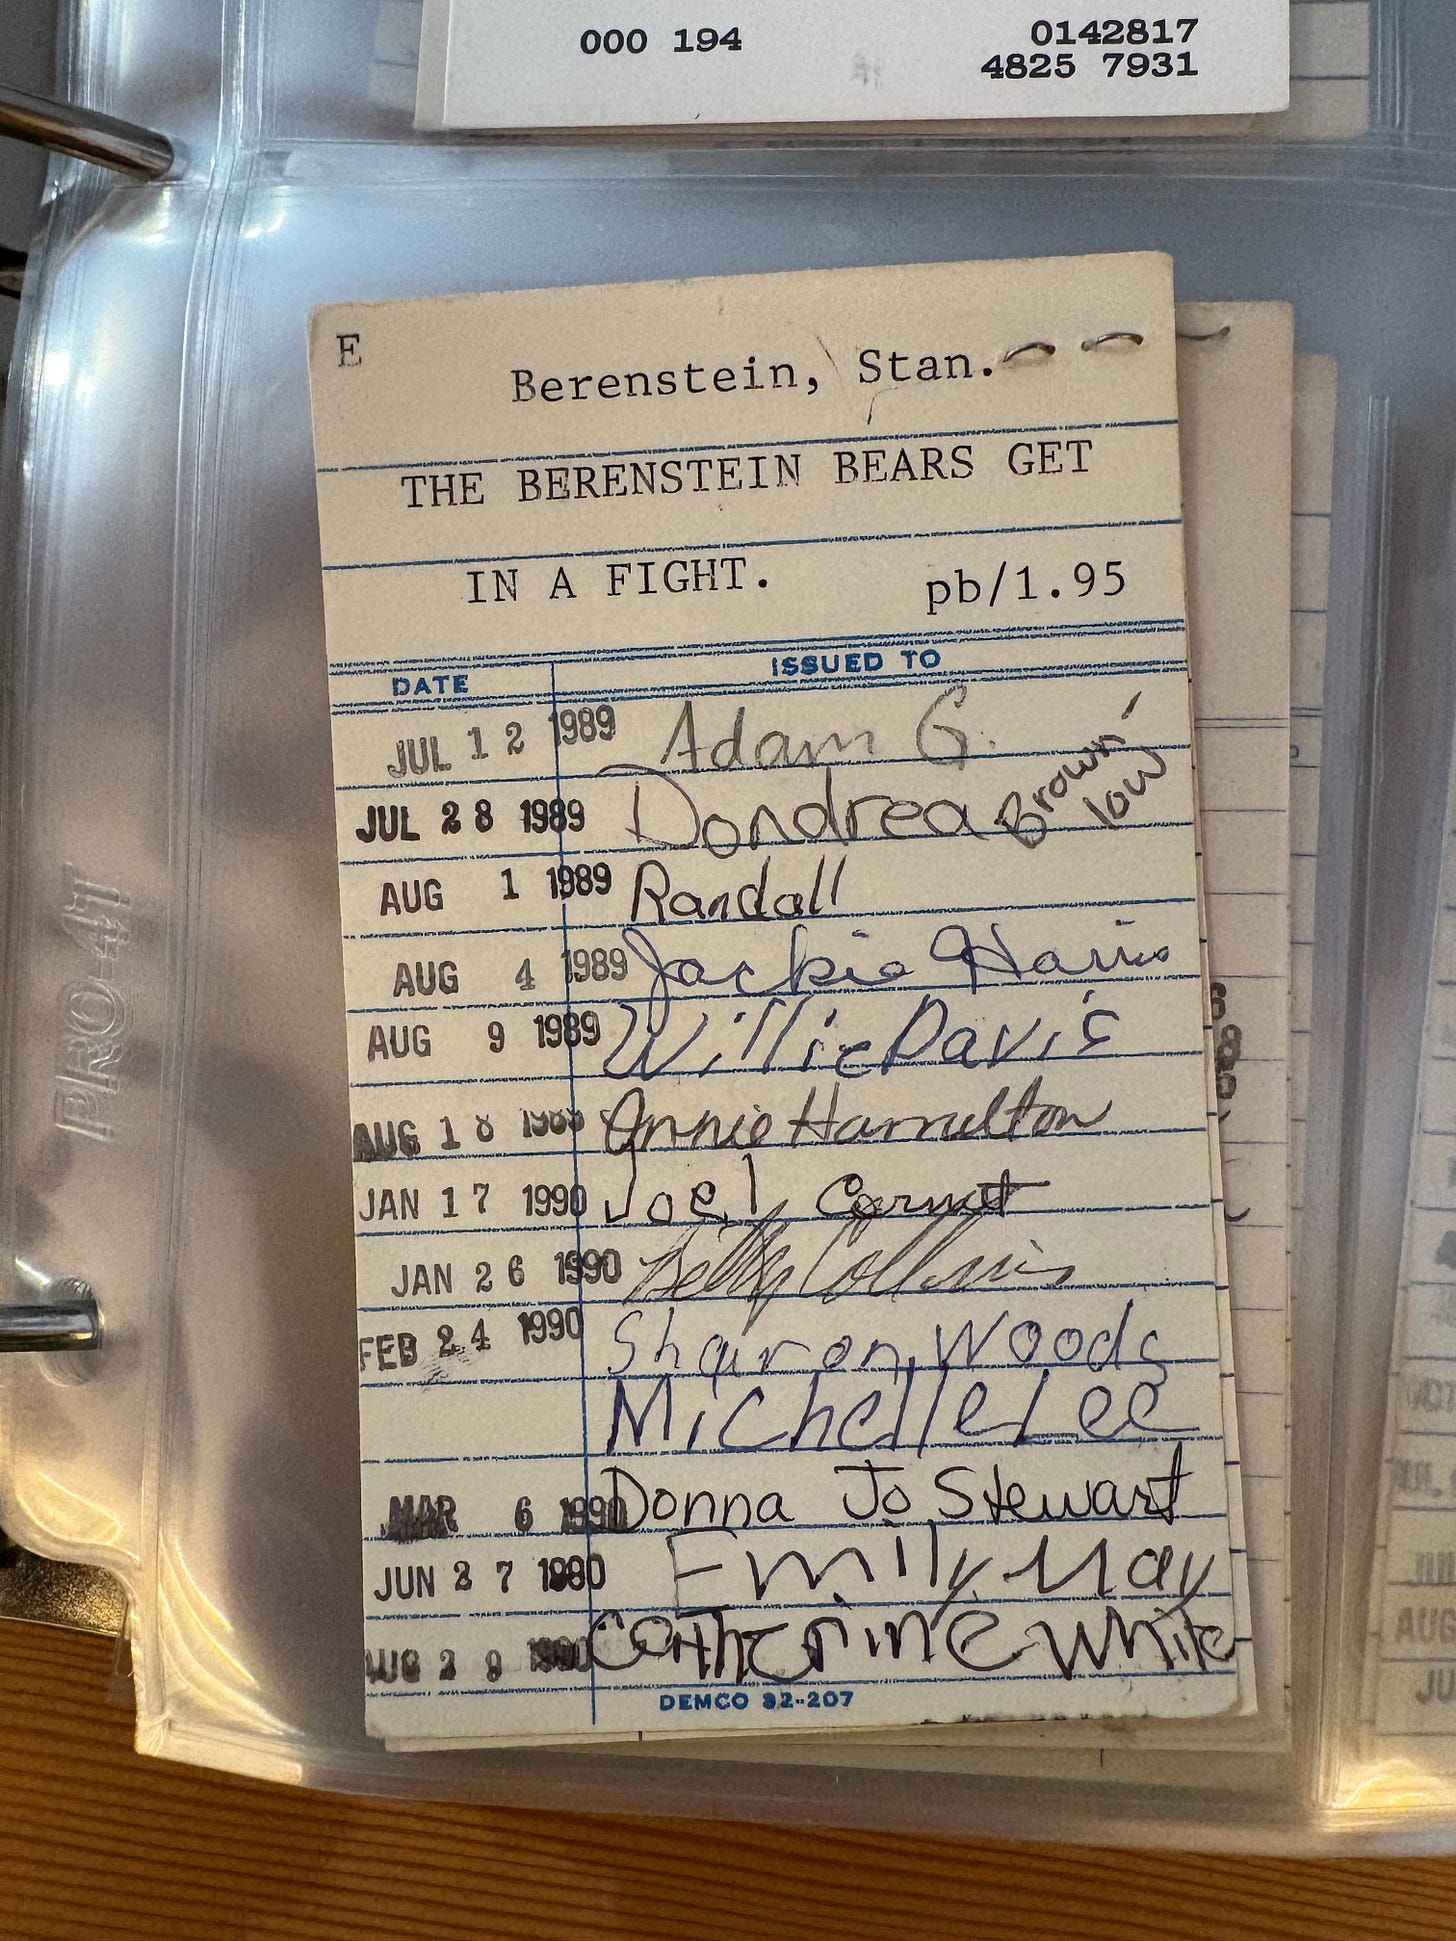 000 194 0142817
4825 7931
E
Berenstein, Stan.
THE BERENSTEIN BEARS GET
IN A FIGHT. pb/1.95
DATE ISSUED TO
JUL 12 1989 Adam G.
JUL 28 1989 Dondrea Brown-
low
AUG 1 1989 Randall
AUG 4 1989 Jackie Harris
AUG 9 1989 Willie Davis
AUG 18 Annie Hamilton
JAN 17 1990 Joel
JAN 26 1990 Betty Collins
FEB 24 1990 Sharon Woods
Michelle Lee
MAR 6 1990 Donna Jo Stewart
JUN 27 1990 Emily May
AUG 29 1990 Catherine White
DEMCO 32-207
PRO-4T